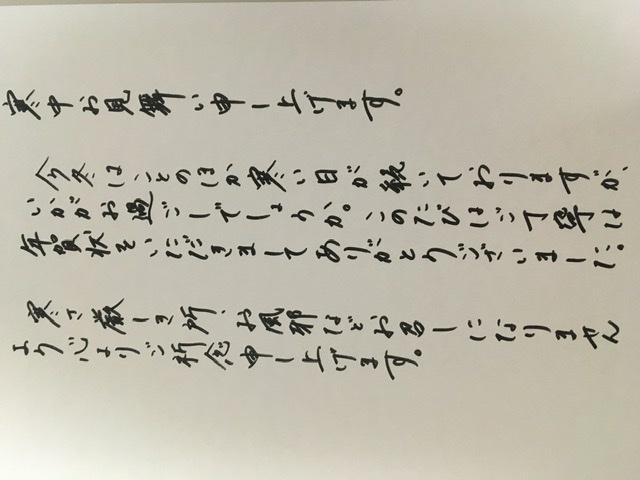 寒中お見舞い申し上げます。
今冬はことのほか寒い日が続いておりますが、
いかがお過ごしでしょうか。このたびはご丁寧は
年賀状をいただきましてありがとうございました。
寒さ厳しき所、お風邪などお召しになりません
よう心よりご祈念申し上げます。